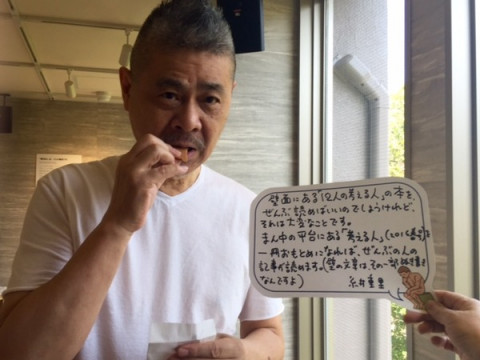 壁面にある「12人の考える人」の本を、
ぜんぶ読めばいいのでしょうけれど、
それは大変なことです。
まん中の平台にある「考える人」(2016春号)を
一冊おもとめになれば、ぜんぶの人の
記事が読めます。(壁の文章は、その一部抜き書き
なんですよ) 糸井重里